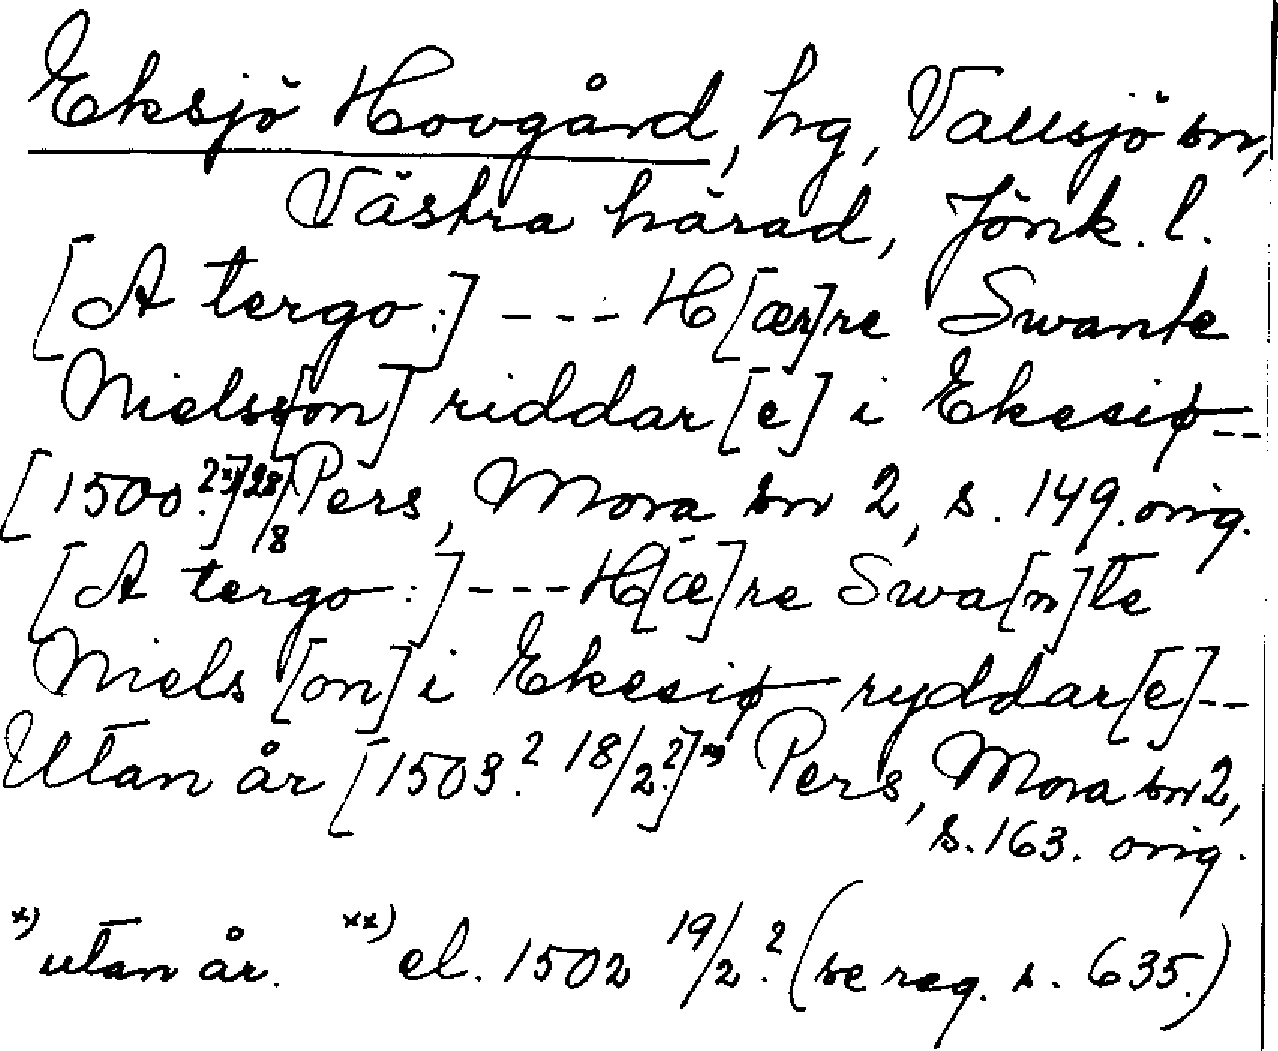 Eksjö Hovgård, hg, Vallsjö sn,
Västra härad, Jönk. l.
[A tergo:] --- H[ær]re Swante
Niels[son] riddar[e] i Ekesiø--
[1500.?*)] 28/8 Pers, Mora sn 2, s. 149. orig.
[A tergo:] --- H[æ]re Swa[n]te
Niels[on] i Ekesiø ryddar[e]--
Utan år [1503.? 18/2.?]**) Pers, Mora sn 2,
s. 163. orig.
*) utan år. **) el. 1502 19/2.? (se reg. s. 635.)